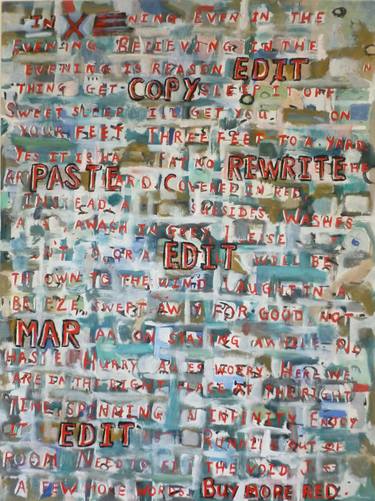 IN XENING EVEN IN THE
EVENING BELIEVING IN THE
EVENING IS REASON EDIT N
THING GET COPY SLEEP IT OFF
SWEET SLEEP IT'L GET YOU. ON
YOUR FEET THREE FEET TO A YARD
YES IT IS HA FAT NO REWRITE THE
AR PASTE ARD COVERED IN RED
INSTEAD A BESIDES WASHES
A AWASH IN GREY ELSE IT
EDIT WILL BE
TH OWN TO THE WIND LAUGHT IN A
BREEZE SWEPT AWAY FOR GOOD NOT
MAR ON STAYING AWHILE
HASTE HURRY WORRY HERE WE
ARE IN THE RIGHT PLACE AT THE RIGHT
TIME SPINNING INFINITY ENJOY
IT EDIT RUNNING OUT OF
ROOM NEED TO THE VOID
A FEW MORE WORDS BUY MORE RED.